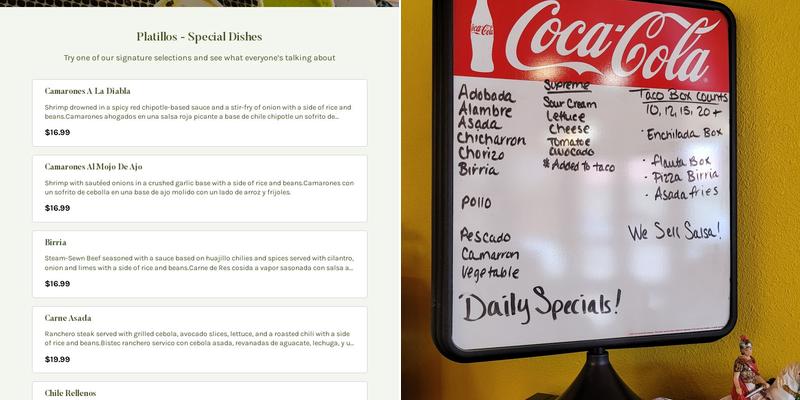 Platillos - Special Dishes
Try one of our signature selections and see what everyone's talking about
Camarones A La Diabla
Shrimp drowned in a spicy red chipotle-based sauce and a stir-fry of onion with a side of rice and
beans.Camarones ahogados en una salsa roja picante a base de chile chipotle un sofrito de...
$16.99
Camarones Al Mojo De Ajo
Shrimp with sautéed onions in a crushed garlic base with a side of rice and beans.Camarones con
un sofrito de cebolla en una base de ajo molido con un lado de arroz y frijoles.
$16.99
Birria
Steam-Sewn Beef seasoned with a sauce based on huajillo chilies and spices served with cilantro,
onion and limes with a side of rice and beans.Carne de Res cosida a vapor sasonada con salsa a...
$16.99
Carne Asada
Ranchero steak served with grilled cebola, avocado slices, lettuce, and a roasted chili with a side
of rice and beans.Bistec ranchero servico con cebola asada, revanadas de aguacate, lechuga, y u...
$19.99
Chile Rellenos
Coca-Cola
Coca-Cola
Adobada
Alambre
Asada
Chicharron
Chorizo
Birria
Pollo
Pescado
Camarron
Vegetable
Supreme
Sour Cream
Lettuce
Cheese
Tomatoe
avocado
$ Added to taco
Taco Box counts
10, 12, 15, 20 +
· Enchilada Box
· flauta Box
· Pizza Birria
· Asada fries
We Sell Salsa!
Daily Specials!